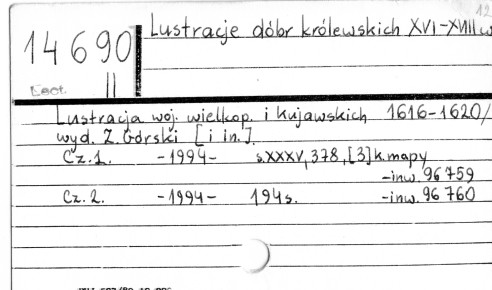 12
Lustracje dóbr królewskich XVI-XVIII w
14 690
II
Lustracja woj. wielkop. i kujawskich 1616-1620/
wyd. Z. Górski [i in.].
Cz. 1. -1994- s. XXXV, 378, [3] k. mapy
-inw. 96 759
Cz. 2. -1994- 194 s. -inw. 96 760